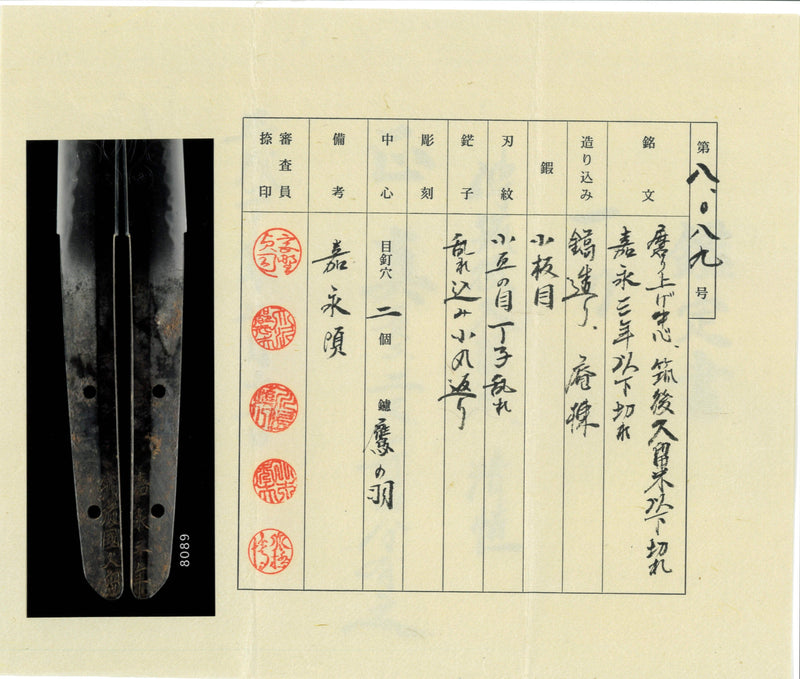 第八、〇八九号
銘文
磨り上げ中心、筑後久留米以下切れ
嘉永三年以下切れ
造り込み
鎬造り、庵棟
鍜
小板目
刃紋
小互の目丁子乱れ
鋩子
乱れ込み小丸返り
彫刻
中心
目釘穴 二個 鑢 鷹の羽
備考
嘉永頃
審査員
捺印
筑後國久留
嘉永三年
8089